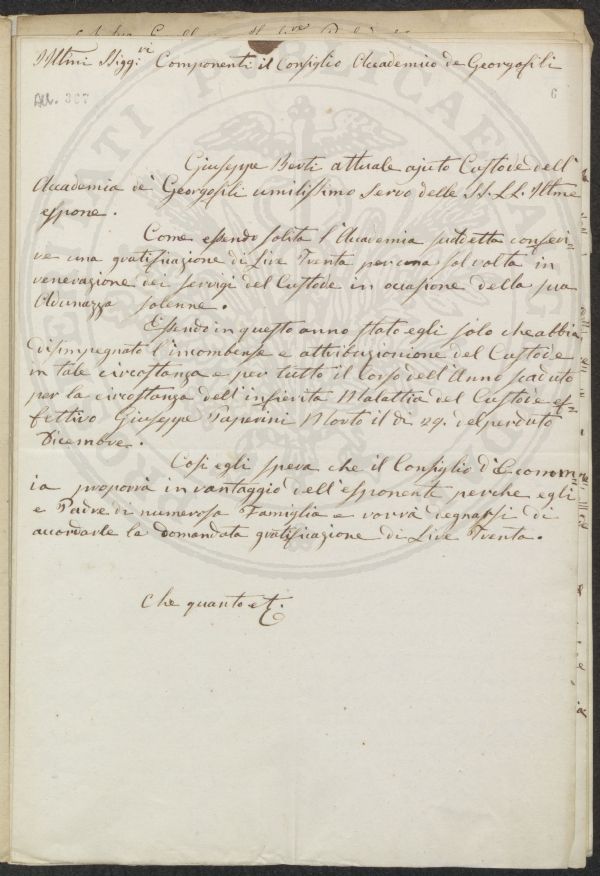 Illmi Sigg.ri Componenti il Consiglio Accademico de Georgofili
All. 367
6
Giuseppe Berti attuale ajuto Custode dell'
Accademia de' Georgofili umilissimo Servo delle SS. LL. Illme
espone.
Come essendo solita l'Accademia suddetta conferi-
re una gratificazione di Lire Trenta per una sol volta in
venerazione dei servigi del Custode in occasione della sua
Adunazza solenne.
Essendo in questo anno stato egli solo che abbia
disimpegnato l'incombense e attribuzionione del Custode
in tale circostanza e per tutto il Corso dell'Anno scaduto
per la circostanza dell'infierita Malattia del Custode ef-
fettivo Giuseppe Paperini Morto il dì 29. del perduto
Dicembre.
Così egli spera che il Consiglio d'Econom-
ia proporrà in vantaggio dell'esponente perche egli
e Padre di numerosa Famiglia e vorrà degnarsi di
accordarle la domandata gratificazione di Lire Trenta.
Che quanto et.